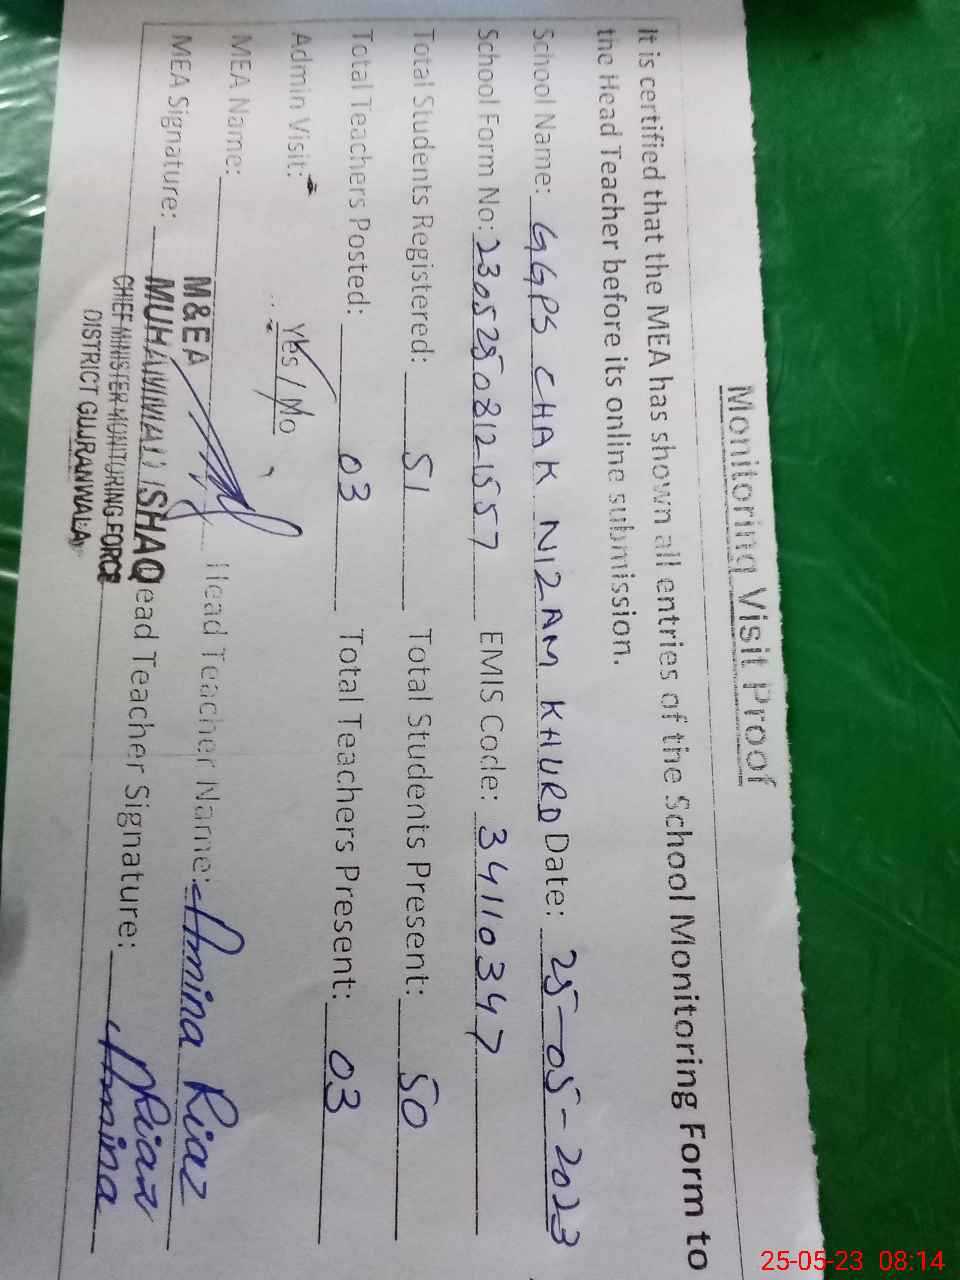 Monitoring Visit Proof
It is certified that the MEA has shown all entries of the School Monitoring Form to
the Head Teacher before its online submission.
School Name: GGPS CHAK NIZAM KHURD Date: 25-05-2023
School Form No: 23052508121557 EMIS Code: 34110347
Total Students Registered: 51 Total Students Present: 50
Total Teachers Posted: 03 Total Teachers Present: 03
Admin Visit: Yes / No
MEA Name: Head Teacher Name: Amina Riaz
M&EA
MEA Signature: MUHAMMAD ISHAQ ead Teacher Signature: Amina Riaz
CHIEF MINISTER MONITORING FORCE
DISTRICT GUJRANWALA
25-05-23 08:14